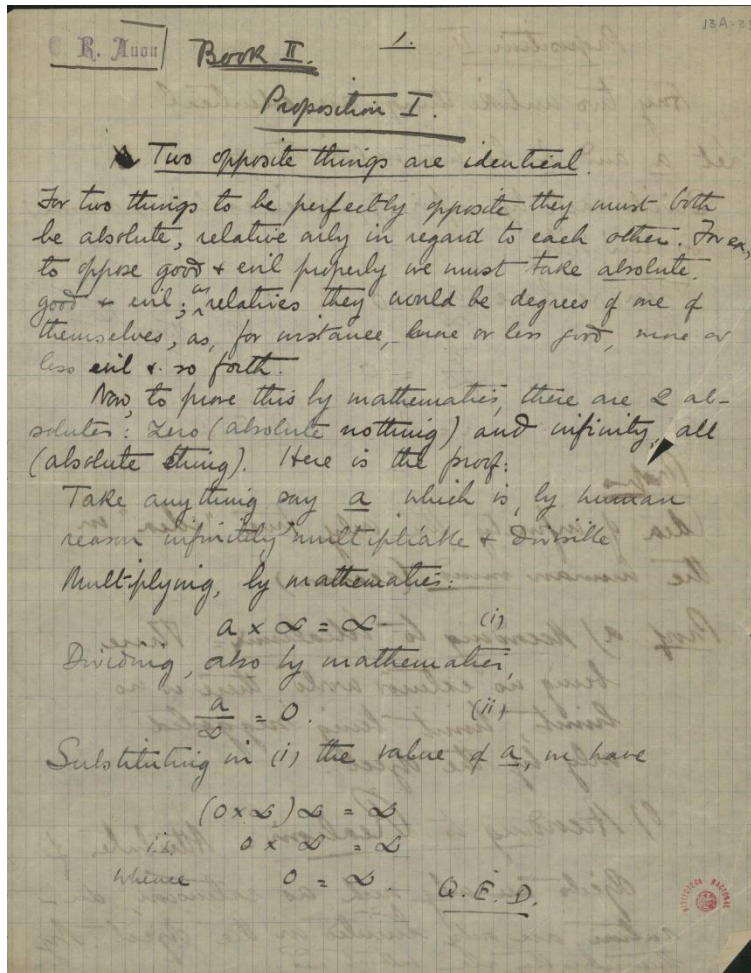 13A-3
C. R. Anon
Book II.
1.
Proposition I.
Two opposite things are identical.
For two things to be perfectly opposite they must both
be absolute, relative only in regard to each other. For ex,
to oppose good & evil properly we must take absolute
good & evil; as relatives they would be degrees of one of
themselves, as, for instance, more or less good, more or
less evil & so forth.
Now, to prove this by mathematics, there are 2 ab-
solutes: Zero (absolute nothing) and infinity, all
(absolute thing). Here is the proof:
Take anything say a which is, by human
reason infinitely multipliable & divisible
Multiplying, by mathematics:
a × ∞ = ∞ (i)
Dividing, also by mathematics,
a/∞ = 0. (ii)
Substituting in (i) the value of a, we have
(0 × ∞) ∞ = ∞
i.e. 0 × ∞ = ∞
whence 0 = ∞. Q.E.D.
BIBLIOTECA NACIONAL